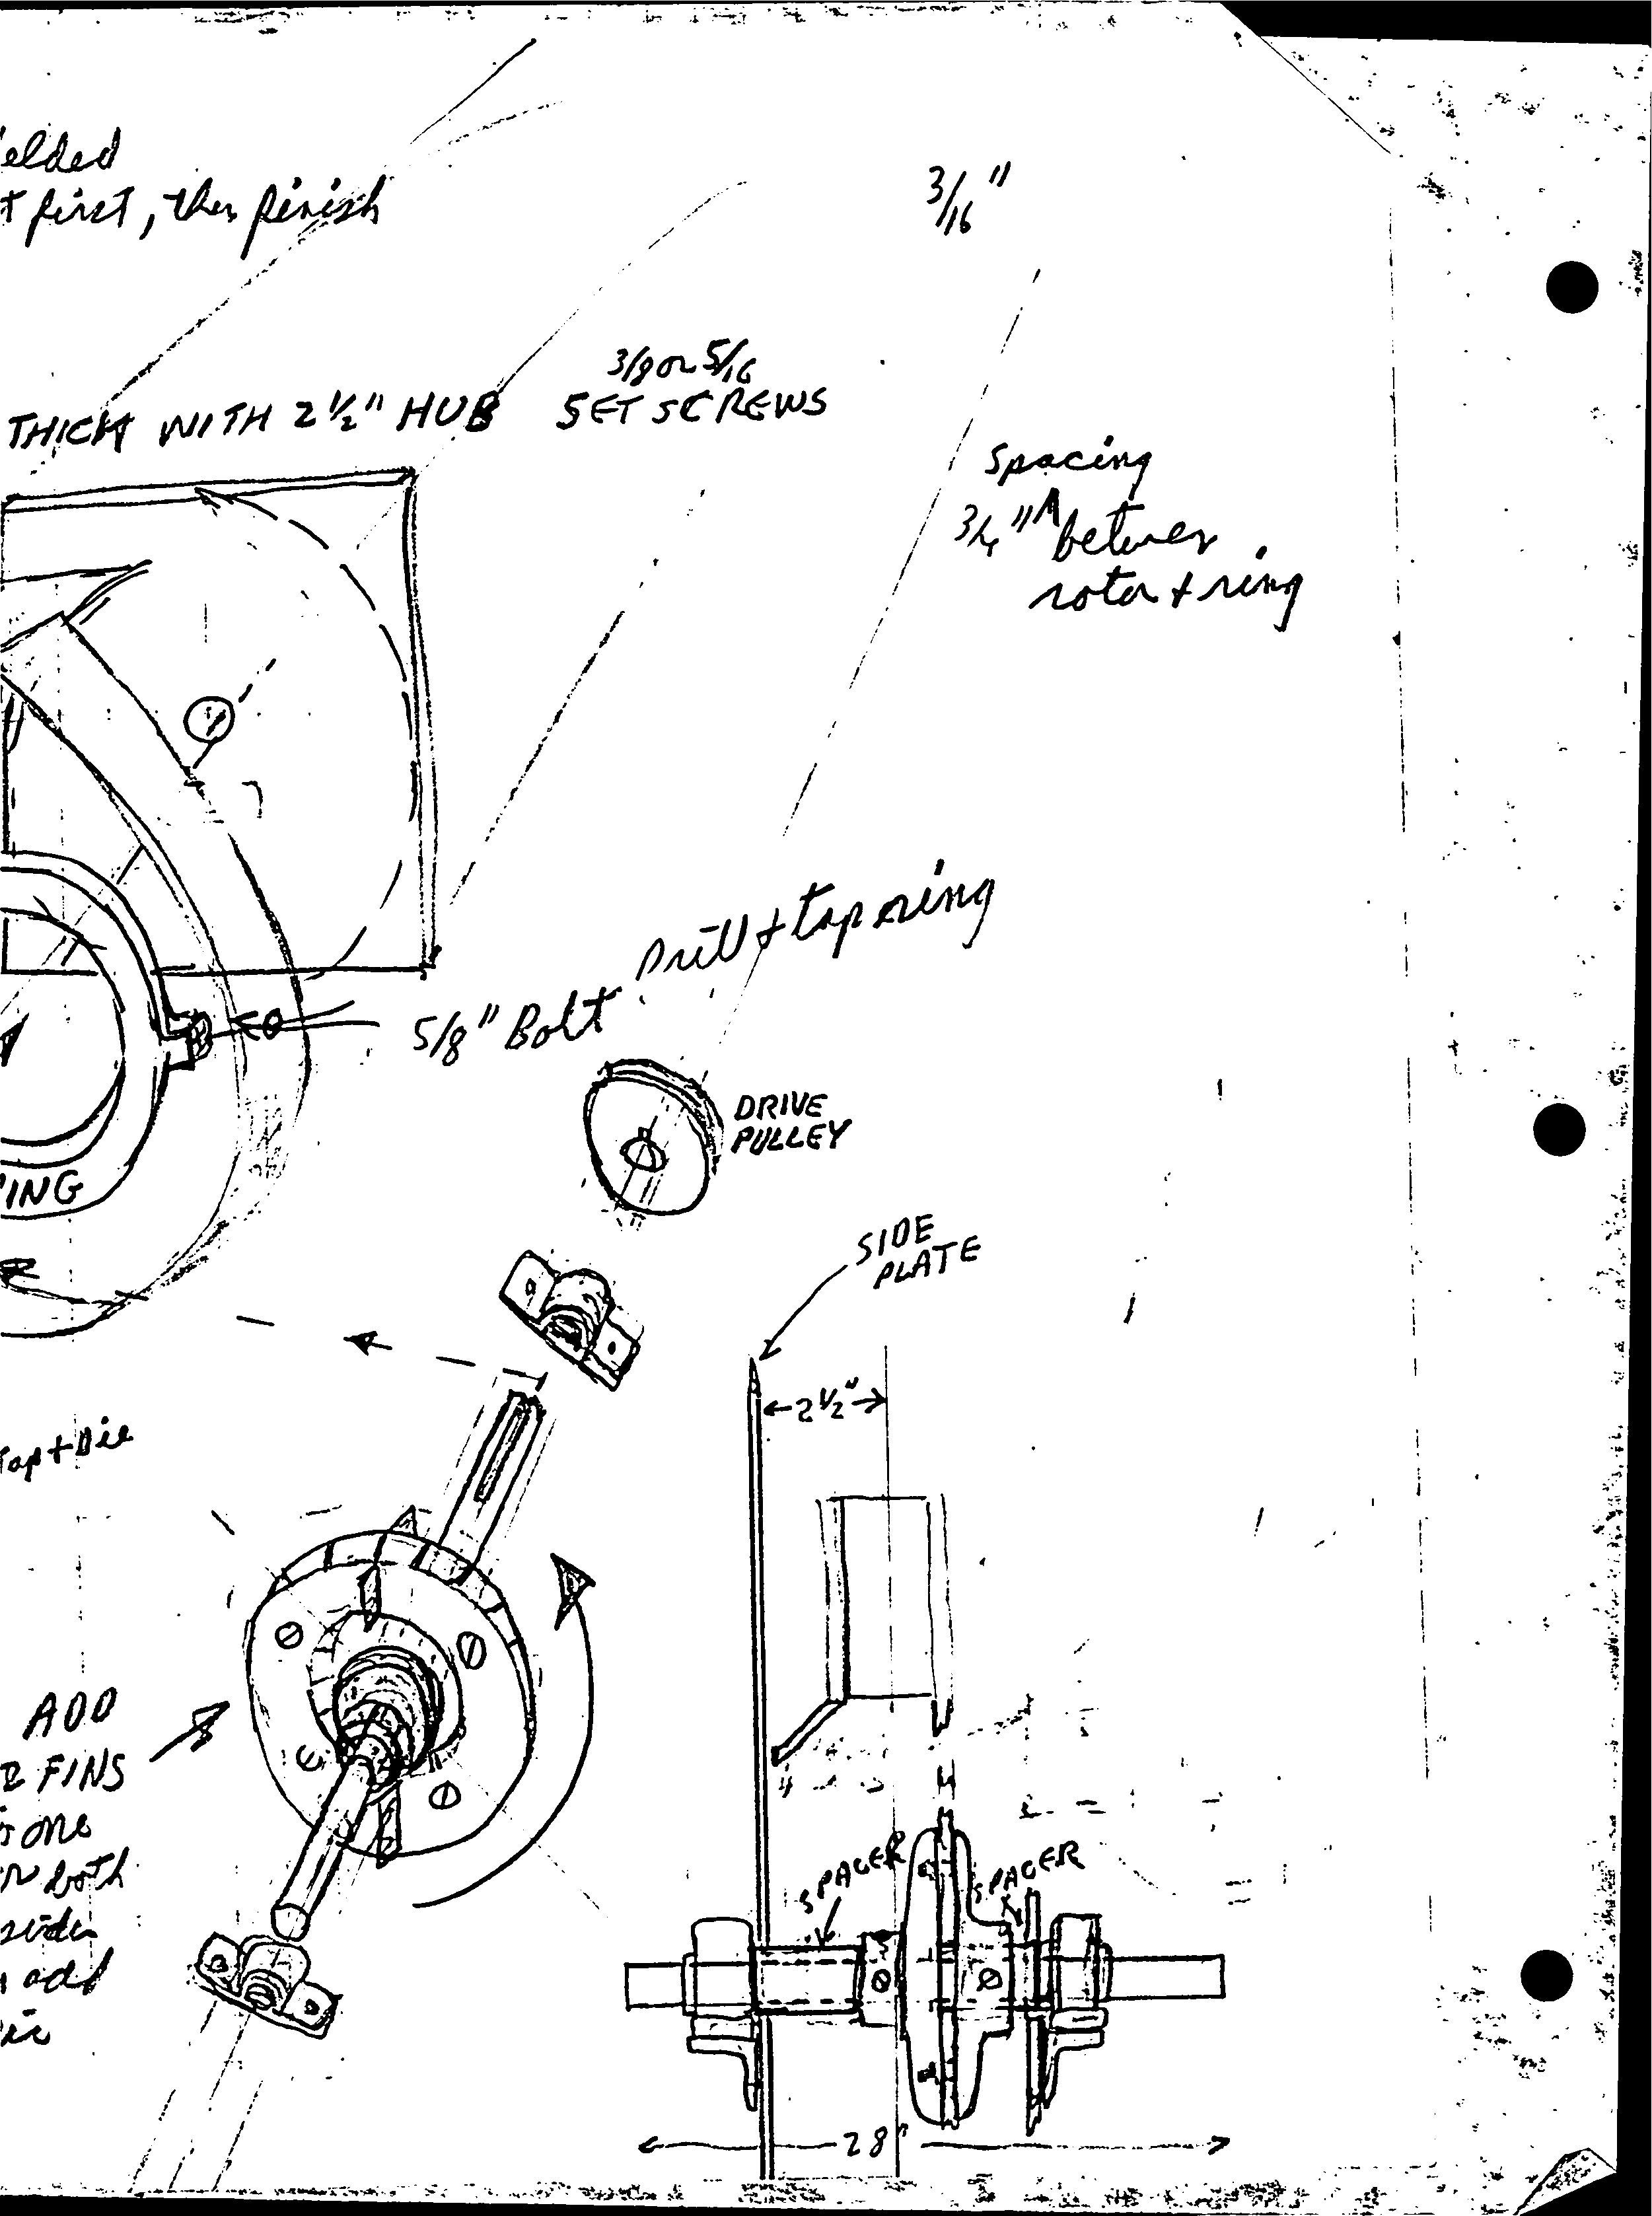 elded
t first, then finish
3/16"
3/8 or 5/16
THICK WITH 2 1/2" HUB SET SCREWS
spacing
3/4" between
rotor + ring
Drill + tap ring
5/8" Bolt
DRIVE
PULLEY
ING
SIDE
PLATE
2 1/2"
Tap + Die
ADD
2 FINS
one
both
side
add
SPACER
SPACER
28"